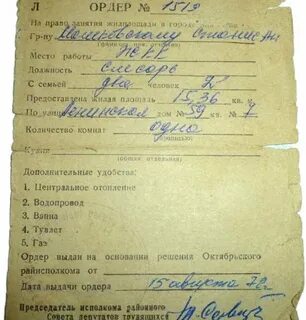 Л ОРДЕР № 1519
На право занятия жилплощади в городе
Гр-ну
(фамилия, имя, отчество)
Место работы ПСКК
Должность слесарь
С семьей два человек 2
Предоставлена жилая площадь 15,36 кв.
По улице Ленинской дом № 59 кв. 7
Количество комнат одна
(прописью)
Кухня
(общая отдельная)
Дополнительные удобства:
1. Центральное отопление
2. Водопровод
3. Ванна
4. Туалет
5. Газ
Ордер выдан на основании решения Октябрьского
райисполкома от
Дата выдачи ордера 15 августа 72г
Председатель исполкома районного
Совета депутатов трудящихся